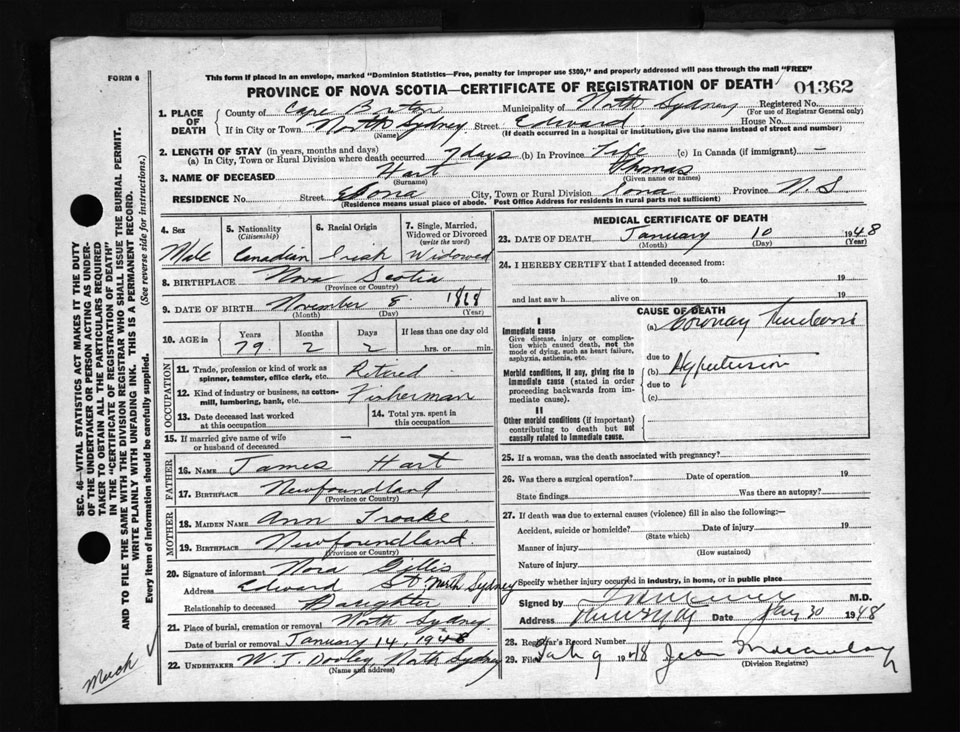 FORM 6
This form if placed in an envelope, marked "Dominion Statistics—Free, penalty for improper use $300," and properly addressed will pass through the mail "FREE"
PROVINCE OF NOVA SCOTIA—CERTIFICATE OF REGISTRATION OF DEATH
01362
1. PLACE OF DEATH
County of Cape Breton Municipality of North Sydney Registered No.
(For use of Registrar General only)
If in City or Town North Sydney Street Edward House No.
(Name) (If death occurred in a hospital or institution, give the name instead of street and number)
2. LENGTH OF STAY (in years, months and days)
(a) In City, Town or Rural Division where death occurred 7 days (b) In Province Life (c) In Canada (if immigrant) —
3. NAME OF DECEASED Hart Thomas
(Surname) (Given name or names)
RESIDENCE No. Street City, Town or Rural Division Iona Province N.S
(Residence means usual place of abode. Post Office Address for residents in rural parts not sufficient)
4. Sex
Male
5. Nationality
(Citizenship)
Canadian
6. Racial Origin
Irish
7. Single, Married, Widowed or Divorced
(write the word)
Widowed
8. BIRTHPLACE Nova Scotia
(Province or Country)
9. DATE OF BIRTH November 8 1868
(Month) (Day) (Year)
10. AGE in
Years Months Days If less than one day old
79 2 2 hrs. or min.
OCCUPATION
11. Trade, profession or kind of work as spinner, teamster, office clerk, etc. Retired
12. Kind of industry or business, as cotton-mill, lumbering, bank, etc. Fisherman
13. Date deceased last worked at this occupation
14. Total yrs. spent in this occupation
15. If married give name of wife or husband of deceased —
FATHER
16. NAME James Hart
17. BIRTHPLACE Newfoundland
(Province or Country)
MOTHER
18. MAIDEN NAME Ann Troake
19. BIRTHPLACE Newfoundland
(Province or Country)
20. Signature of informant Nora Gillis
Address Edward St North Sydney
Relationship to deceased Daughter
21. Place of burial, cremation or removal North Sydney
Date of burial or removal January 14 1948
22. UNDERTAKER W. J. Dooley, North Sydney
(Name and address)
MEDICAL CERTIFICATE OF DEATH
23. DATE OF DEATH January 10 1948
(Month) (Day) (Year)
24. I HEREBY CERTIFY that I attended deceased from:
19 to 19
and last saw h alive on 19
CAUSE OF DEATH
I
Immediate cause
Give disease, injury or complication which caused death, not the mode of dying, such as heart failure, asphyxia, asthenia, etc.
(a) Coronary
due to
Morbid conditions, if any, giving rise to immediate cause (stated in order proceeding backwards from immediate cause).
(b) Hypertension
due to
(c)
II
Other morbid conditions (if important) contributing to death but not causally related to immediate cause.
25. If a woman, was the death associated with pregnancy?
26. Was there a surgical operation? Date of operation 19
State findings Was there an autopsy?
27. If death was due to external causes (violence) fill in also the following:—
Accident, suicide or homicide? Date of injury 19
(State which)
Manner of injury
(How sustained)
Nature of injury
Specify whether injury occurred in industry, in home, or in public place
Signed by M.D.
Address Date Jany 30 1948
28. Registrar's Record Number
29. Filed Feb 9 1948 Jean
(Division Registrar)
SEC. 46—VITAL STATISTICS ACT MAKES IT THE DUTY
OF THE UNDERTAKER OR PERSON ACTING AS UNDER-
TAKER TO OBTAIN ALL THE PARTICULARS REQUIRED
IN THE "CERTIFICATE OF REGISTRATION OF DEATH"
AND TO FILE THE SAME WITH THE DIVISION REGISTRAR WHO SHALL ISSUE THE BURIAL PERMIT.
WRITE PLAINLY WITH UNFADING INK. THIS IS A PERMANENT RECORD.
Every item of information should be carefully supplied. (See reverse side for instructions.)